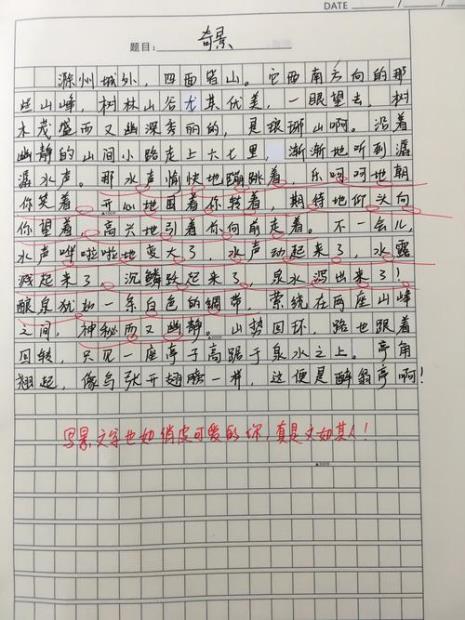 DATE / /
题目: 奇景
滁州城外，四面皆山。它西南方向的那
些山峰，树林山谷尤其优美，一眼望去，树
木茂盛而又幽深秀丽的，是琅琊山啊。沿着
幽静的山间小路走上六七里，渐渐地听到潺
潺水声。那水声愉快地蹦跳着，乐呵呵地朝
你笑着，开心地围着你转着，期待地仰头向
你望着，高兴地引着你向前走着。不一会儿，
水声哗啦啦地变大了，水声动起来了，水露
溅起来了，沉鳞跃起来了，泉水泻出来了！
酿泉犹如一条白色的绸带，萦绕在两座山峰
之间，神秘而又幽静。山势回环，路也跟着
回转，只见一座亭子高踞于泉水之上。亭角
翘起，像鸟张开翅膀一样，这便是醉翁亭啊！
写景文字也如俏皮可爱的你，真是文如其人！